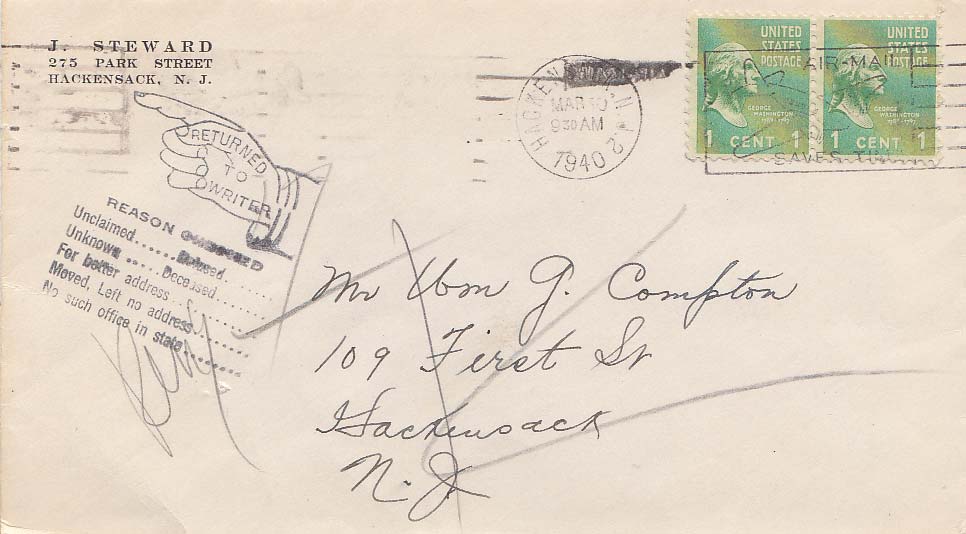 J. STEWARD
275 PARK STREET
HACKENSACK, N. J.
HACKENSACK, N.J. 2
MAR 10
9 30 AM
1940
AIR-MAIL
SAVES TIME
UNITED
STATES
POSTAGE
GEORGE
WASHINGTON
1789-1797
1 CENT 1
UNITED
STATES
POSTAGE
GEORGE
WASHINGTON
1789-1797
1 CENT 1
RETURNED
TO
WRITER
REASON CHECKED
Unclaimed..... Refused.....
Unknown..... Deceased.......
For better address.......
Moved, Left no address.......
No such office in state.......
Mr Wm G. Compton
109 First St
Hackensack
N.J.